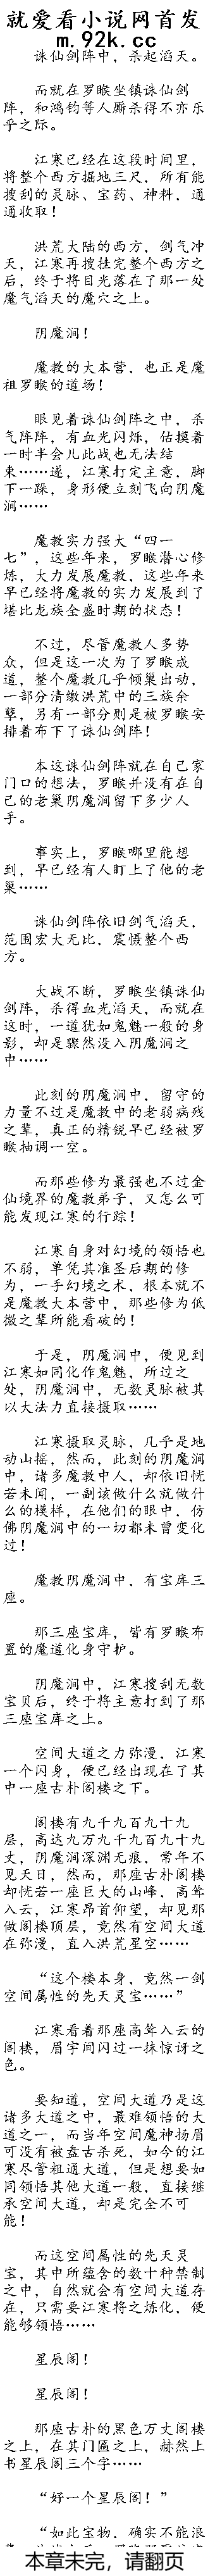 就爱看小说网首发
m.92k.cc
诛仙剑阵中，杀起滔天。
而就在罗睺坐镇诛仙剑
阵，和鸿钧等人厮杀得不亦乐
乎之际。
江寒已经在这段时间里，
将整个西方掘地三尺，所有能
搜刮的灵脉、宝药、神料，通
通收取！
洪荒大陆的西方，剑气冲
天，江寒再搜挂完整个西方之
后，终于将目光落在了那一处
魔气滔天的魔穴之上。
阴魔涧！
魔教的大本营，也正是魔
祖罗睺的道场！
眼见着诛仙剑阵之中，杀
气阵阵，有血光闪烁，估摸着
一时半会儿此战也无法结
束……遂，江寒打定主意，脚
下一跺，身形便立刻飞向阴魔
涧……
魔教实力强大“四一
七”，这些年来，罗睺潜心修
炼，大力发展魔教，这些年来
早已经将魔教的实力发展到了
堪比龙族全盛时期的状态！
不过，尽管魔教人多势
众，但是这一次为了罗睺成
道，整个魔教几乎倾巢出动，
一部分清缴洪荒中的三族余
孽，另有一部分则是被罗睺安
排着布下了诛仙剑阵！
本这诛仙剑阵就在自己家
门口的想法，罗睺并没有在自
己的老巢阴魔涧留下多少人
手。
事实上，罗睺哪里能想
到，早已经有人盯上了他的老
巢……
诛仙剑阵依旧剑气滔天，
范围宏大无比，震慑整个西
方。
大战不断，罗睺坐镇诛仙
剑阵，杀得血光滔天，而就在
这时，一道犹如鬼魅一般的身
影，却是骤然没入阴魔涧之
中……
此刻的阴魔涧中，留守的
力量不过是魔教中的老弱病残
之辈，真正的精锐早已经被罗
睺抽调一空。
而那些修为最强也不过金
仙境界的魔教弟子，又怎么可
能发现江寒的行踪！
江寒自身对幻境的领悟也
不弱，单凭其准圣后期的修
为，一手幻境之术，根本就不
是魔教大本营中，那些修为低
微之辈所能看破的！
于是，阴魔涧中，便见到
江寒如同化作鬼魅，所过之
处，阴魔涧中，无数灵脉被其
以大法力直接摄取……
江寒摄取灵脉，几乎是地
动山摇，然而，此刻的阴魔涧
中，诸多魔教中人，却依旧恍
若未闻，一副该做什么就做什
么的模样，在他们的眼中，仿
佛阴魔涧中的一切都未曾变化
过！
魔教阴魔涧中，有宝库三
座。
那三座宝库，皆有罗睺布
置的魔道化身守护。
阴魔涧中，江寒搜刮无数
宝贝后，终于将主意打到了那
三座宝库之上。
空间大道之力弥漫，江寒
一个闪身，便已经出现在了其
中一座古朴阁楼之下。
阁楼有九千九百九十九
层，高达九万九千九百九十九
丈，阴魔涧深渊无痕，常年不
见天日，然而，那座古朴阁楼
却恍若一座巨大的山峰，高耸
入云，江寒昂首仰望，却见那
做阁楼顶层，竟然有空间大道
在弥漫，直入洪荒星空……
“这个楼本身，竟然一剑
空间属性的先天灵宝……”
江寒看着那座高耸入云的
阁楼，眉宇间闪过一抹惊讶之
色。
要知道，空间大道乃是这
诸多大道之中，最难领悟的大
道之一，而当年空间魔神扬眉
可没有被盘古杀死，如今的江
寒尽管粗通大道，但是想要如
同领悟其他大道一般，直接继
承空间大道，却是完全不可
能！
而这空间属性的先天灵
宝，其中所蕴含的数十种禁制
之中，自然就会有空间大道存
在，只需要江寒将之炼化，便
能够领悟……
星辰阁！
星辰阁！
那座古朴的黑色万丈阁楼
之上，在其门匾之上，赫然上
书星辰阁三个字……
“好一个星辰阁！”
“如此宝物，确实不能浪
本章未完，请翻页